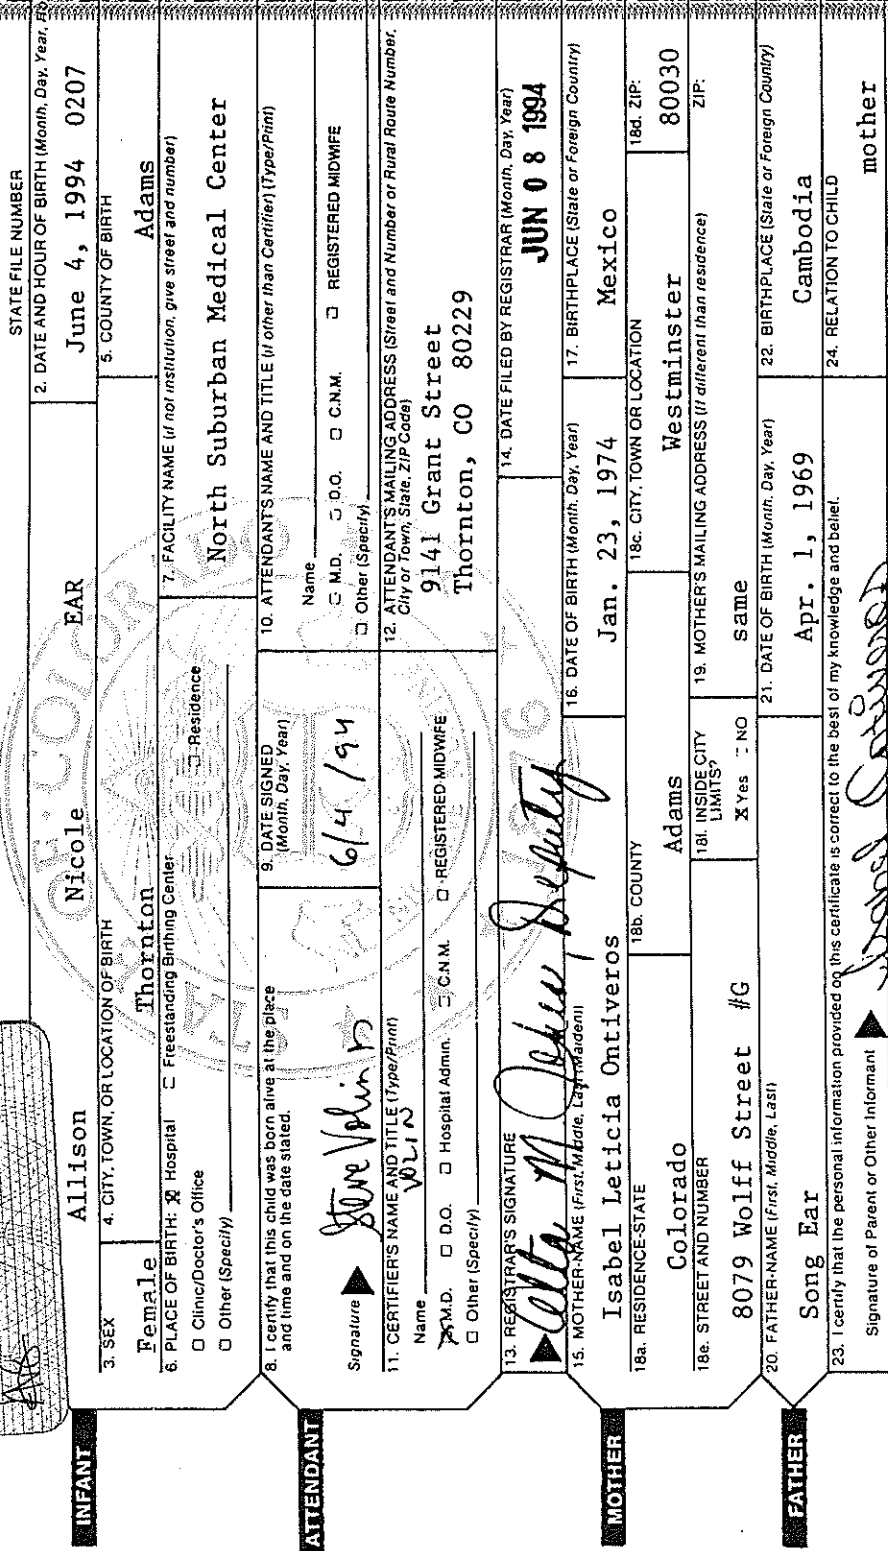 STATE FILE NUMBER
Allison Nicole EAR
2. DATE AND HOUR OF BIRTH (Month, Day, Year,
June 4, 1994 0207
INFANT
3. SEX
Female
4. CITY, TOWN, OR LOCATION OF BIRTH
Thornton
5. COUNTY OF BIRTH
Adams
6. PLACE OF BIRTH: X Hospital □ Freestanding Birthing Center
□ Clinic/Doctor's Office □ Residence
□ Other (Specify)
7. FACILITY NAME (if not institution, give street and number)
North Suburban Medical Center
8. I certify that this child was born alive at the place
and time and on the date stated.
Signature ▶ Steve Volin
9. DATE SIGNED
(Month, Day, Year)
6/4/94
10. ATTENDANT'S NAME AND TITLE (if other than Certifier) (Type/Print)
Name
□ M.D. □ D.O. □ C.N.M. □ REGISTERED MIDWIFE
□ Other (Specify)
ATTENDANT
11. CERTIFIER'S NAME AND TITLE (Type/Print)
Name VOLIN
X M.D. □ D.O. □ Hospital Admin. □ C.N.M. □ REGISTERED MIDWIFE
□ Other (Specify)
12. ATTENDANT'S MAILING ADDRESS (Street and Number or Rural Route Number,
City or Town, State, ZIP Code)
9141 Grant Street
Thornton, CO 80229
13. REGISTRAR'S SIGNATURE
▶ M Deputy
14. DATE FILED BY REGISTRAR (Month, Day, Year)
JUN 08 1994
15. MOTHER-NAME (First, Middle, Last (Maiden))
Isabel Leticia Ontiveros
16. DATE OF BIRTH (Month, Day, Year)
Jan. 23, 1974
17. BIRTHPLACE (State or Foreign Country)
Mexico
MOTHER
18a. RESIDENCE-STATE
Colorado
18b. COUNTY
Adams
18c. CITY, TOWN OR LOCATION
Westminster
18d. ZIP:
80030
18e. STREET AND NUMBER
8079 Wolff Street #G
18f. INSIDE CITY
LIMITS?
X Yes □ NO
19. MOTHER'S MAILING ADDRESS (if different than residence)
same
ZIP:
FATHER
20. FATHER-NAME (First, Middle, Last)
Song Ear
21. DATE OF BIRTH (Month, Day, Year)
Apr. 1, 1969
22. BIRTHPLACE (State or Foreign Country)
Cambodia
23. I certify that the personal information provided on this certificate is correct to the best of my knowledge and belief.
Signature of Parent or Other Informant ▶ Isabel Ontiveros
24. RELATION TO CHILD
mother
OF COLORADO
1876